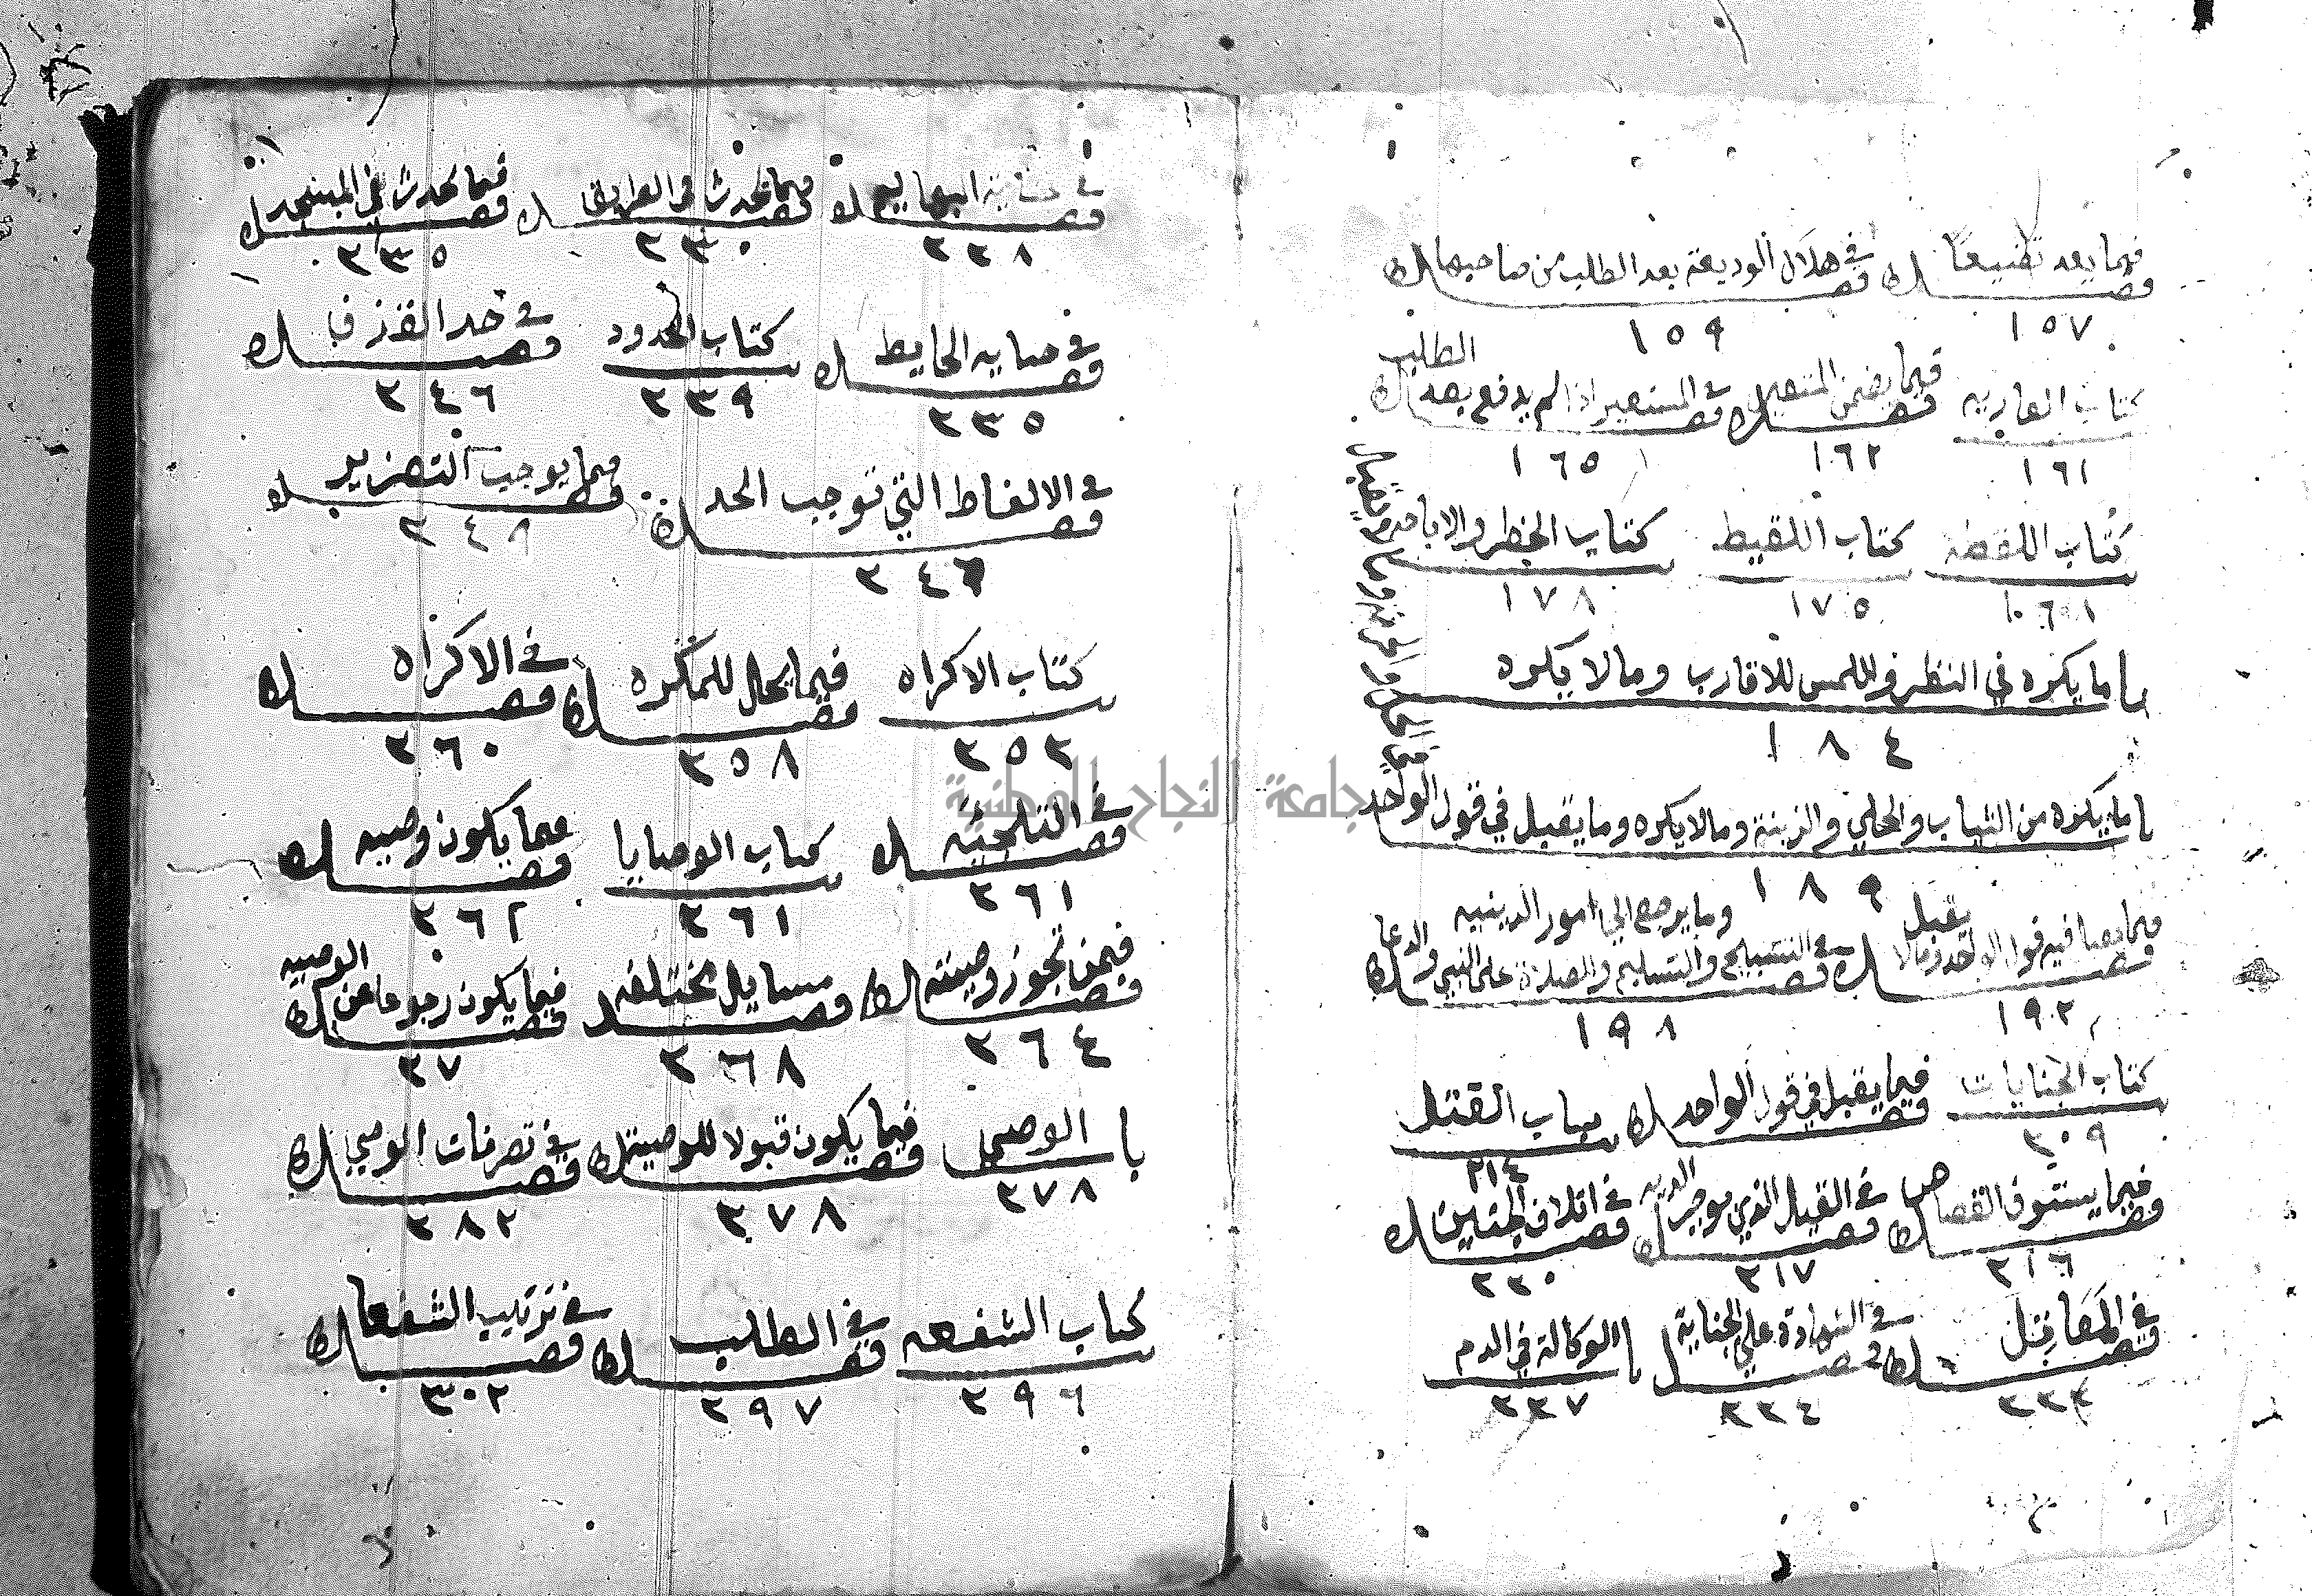 فيما يعد تضييعا فصل في هلاك الوديعة بعد الطلب من صاحبها فصل
١٥٧ ١٥٩
كتاب العاريه فيما يضمن المستعير فصل في المستعير اذا لم يدفع بعد الطلب فصل
١٦١ ١٦٢ ١٦٥
كتاب اللقطه كتاب اللقيط كتاب الحظر والاباحة
١٧٥ ١٧٨
باما يكره في النظر واللمس للاقارب ومالا يكره
١٨٤
باما يكره من الثياب والحلي والزينة ومالا يكره وما يقبل في قول الواحد
١٨٩
فيما يقبل فيه قول الواحد ومالا يقبل فصل في التسبيح والتسليم والصلاة على النبي والدعا وما يرجع الي امور الدينيه فصل
١٩٢ ١٩٨
كتاب الجنايات فيما يقبل في قول الواحد فصل باب القتل
٢٠٩ ٢١٤
فيما يستوفى القصاص فصل في القتل الذي يوجب الديه فصل في اتلاف الجنين فصل
٢١٦ ٢١٧ ٢٢٠
في المقاتل فصل في الشهادة علي الجناية فصل با الوكالة في الدم
٢٢٤ ٢٢٧
في جناية البهايم فصل فيما يحدث في الطريق فصل فيما يحدث في المسجد فصل
٢٢٨ ٢٣٠ ٢٣٥
في جنايه الحايط فصل كتاب الحدود في حد القذف فصل
٢٣٥ ٢٣٩ ٢٤٦
في الالفاظ التي توجب الحد فصل فيما يوجب التعزير فصل
٢٤٦ ٢٤٩
كتاب الاكراه فيما يحل للمكره فصل في الاكراه فصل
٢٥٢ ٢٥٨ ٢٦٠
جامعة النجاح الوطنية
في التلجئه فصل كتاب الوصايا فيما يكون وصيه فصل
٢٦١ ٢٦١ ٢٦٢
فيمن تجوز وصيته فصل مسايل مختلفه فصل فيما يكون رجوعا عن الوصيه فصل
٢٦٤ ٢٦٨ ٢٧
با الوصي فيما يكون قبولا للوصية فصل في تصرفات الوصي فصل
٢٧٨ ٢٧٨ ٢٨٢
كتاب الشفعه في الطلب فصل في ترتيب الشفعا فصل
٢٩٦ ٢٩٧ ٣٠٢